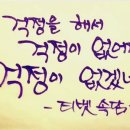 걱정을 해서
걱정이 없어
걱정이 없겠네
- 티벳 속담